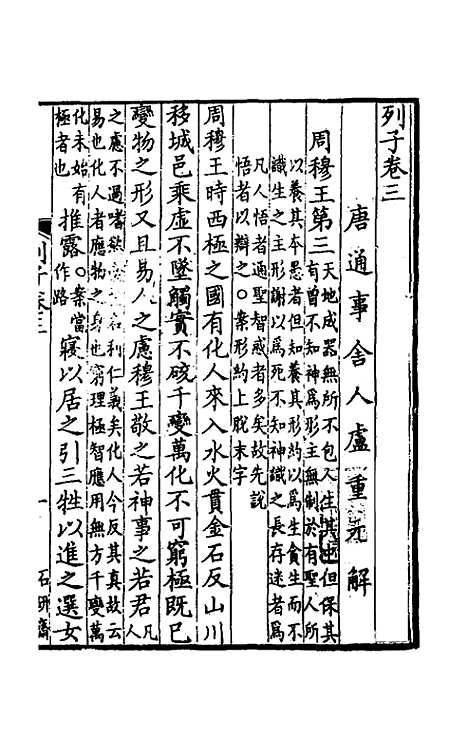 列子卷三
唐通事舍人盧重元解
周穆王第三
天地成器無所不包人生其也但保其
有曾不知神為形主無制於有聖人所
以養其本愚者但知養其形約以為生貪生而不
識生之主形謝以為死不知神識之長存迷者為
凡人悟者通聖智惑者多矣故先說
悟者以辯之○案形約上脫末字
周穆王時西極之國有化人來入水火貫金石反山川
移城邑乘虛不墜觸實不硋千變萬化不可窮極既已
變物之形又且易人之慮穆王敬之若神事之若君
凡人
之慮不過嗜欲名利仁義矣化人今反其真故云
易也化人者應物之身也窮理極智應用無方千變萬
化未始有
極者也
推露
○案當
作路
寢以居之引三牲以進之選女
列子卷三
一
石研齋